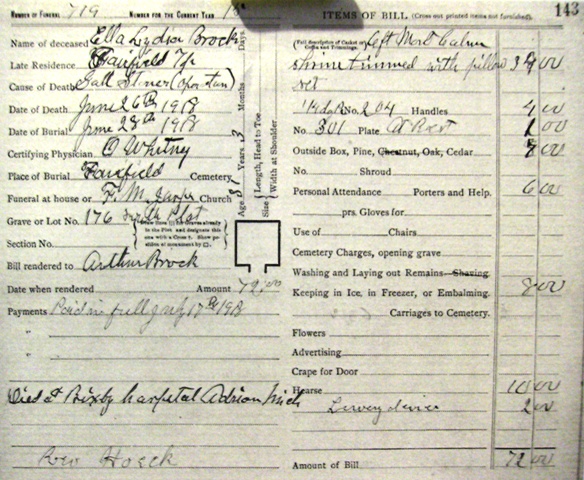 NUMBER OF FUNERAL 719 NUMBER FOR THE CURRENT YEAR
Name of deceased Ella Lydia Brock
Late Residence Fairfield Tp
Cause of Death Gall Stones (operation)
Date of Death June 26th 1918
Date of Burial June 28th 1918
Certifying Physician O Whitney
Place of Burial Fairfield Cemetery
Funeral at house or F. M. Jasper Church
Grave or Lot No. 176 North Plat
Section No.
Bill rendered to Arthur Brock
Date when rendered Amount 72.00
Payments Paid in full July 17th 1918
"
"
Died at Bixby hospital Adrian Mich
Rev Hosck
Age Years 3 Months Days
Size { Length, Head to Toe
Width at Shoulder
ITEMS OF BILL (Cross out printed items not furnished). 143
(Full description of Casket or Coffin and Trimmings.)
trimmed with pillow 00
set
No. 204 Handles 4 00
No. 301 Plate At Rest 1 00
Outside Box, Pine, Chestnut, Oak, Cedar 8 00
No. Shroud
Personal Attendance Porters and Help. 6 00
prs. Gloves for
Use of Chairs
Cemetery Charges, opening grave
Washing and Laying out Remains Shaving
Keeping in Ice, in Freezer, or Embalming. 8 00
Carriages to Cemetery.
Flowers
Advertising
Crape for Door
Hearse 10 00
2 00
Amount of Bill 72 00